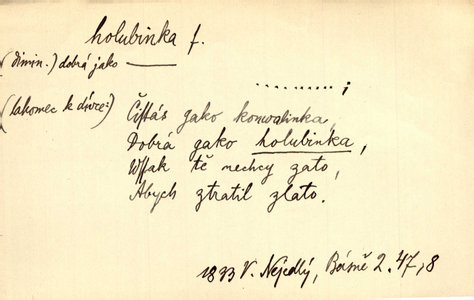 holubinka f.
(dimin.) dobrá jako ———
.......... i
(lakomec k dívce:) Čistás gako konwalinka,
Dobrá gako holubinka,
Wssak tě nechcy zato,
Abych ztratil zlato.
1833 V. Nejedlý, Básně 2.47,8